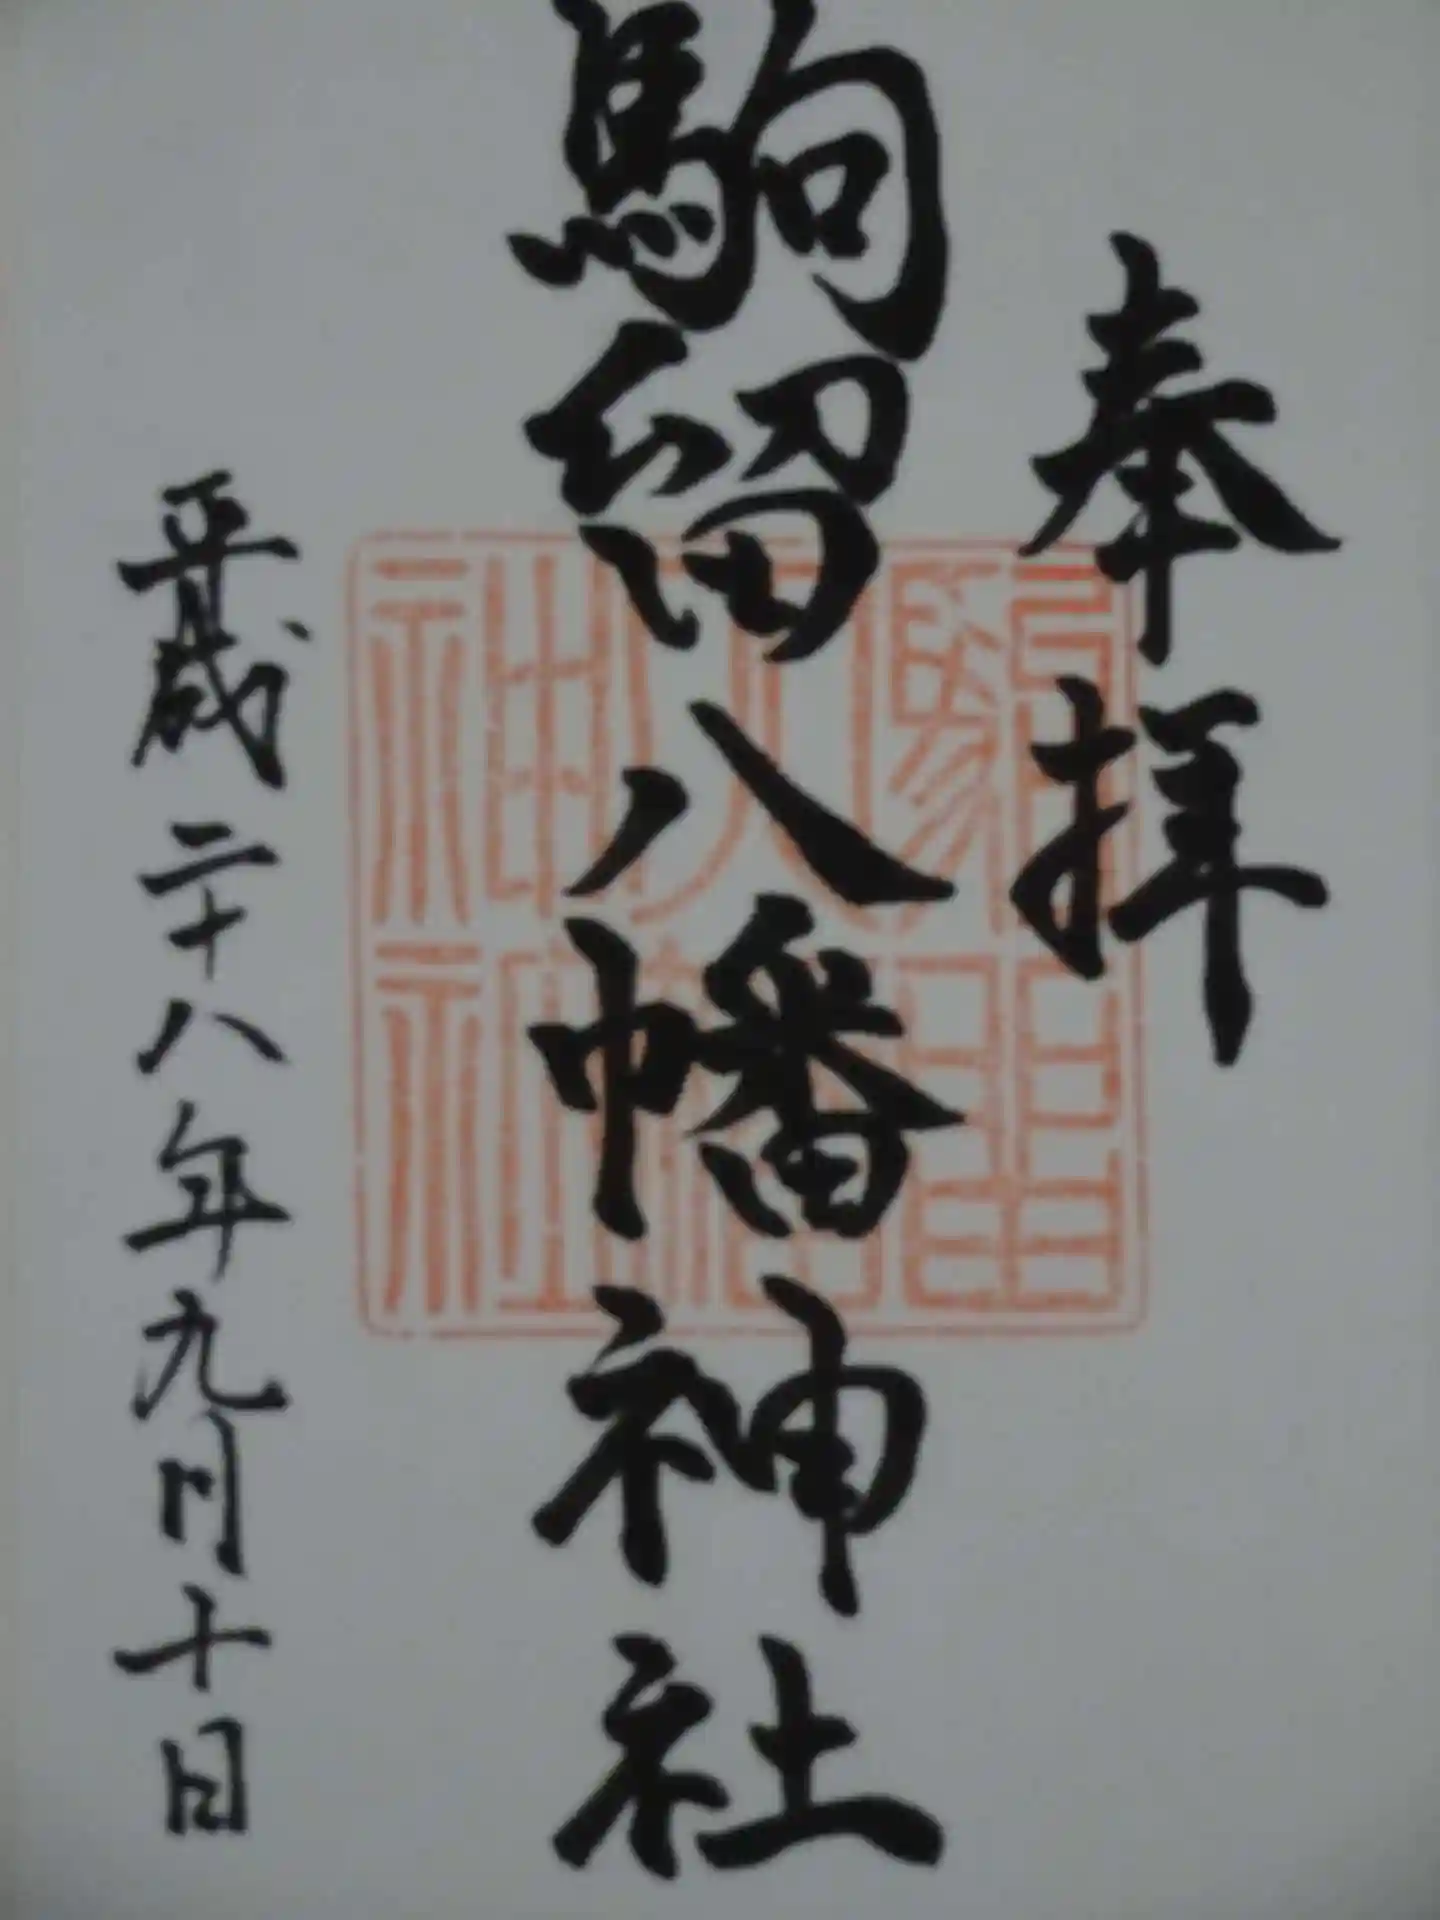 奉拝
駒留八幡神社
駒留
八幡
神社
平成二十八年九月十日